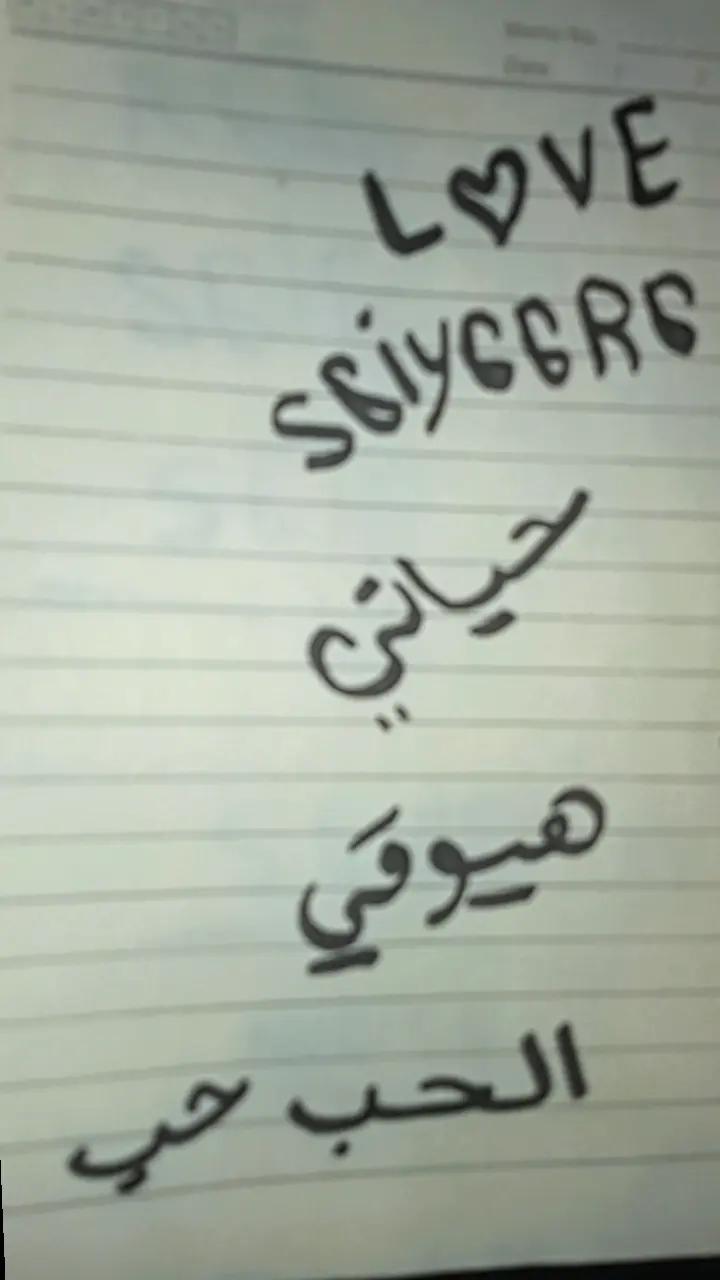 LOVE
S6iy66R6
حياتي
هيوقي
الحب حب